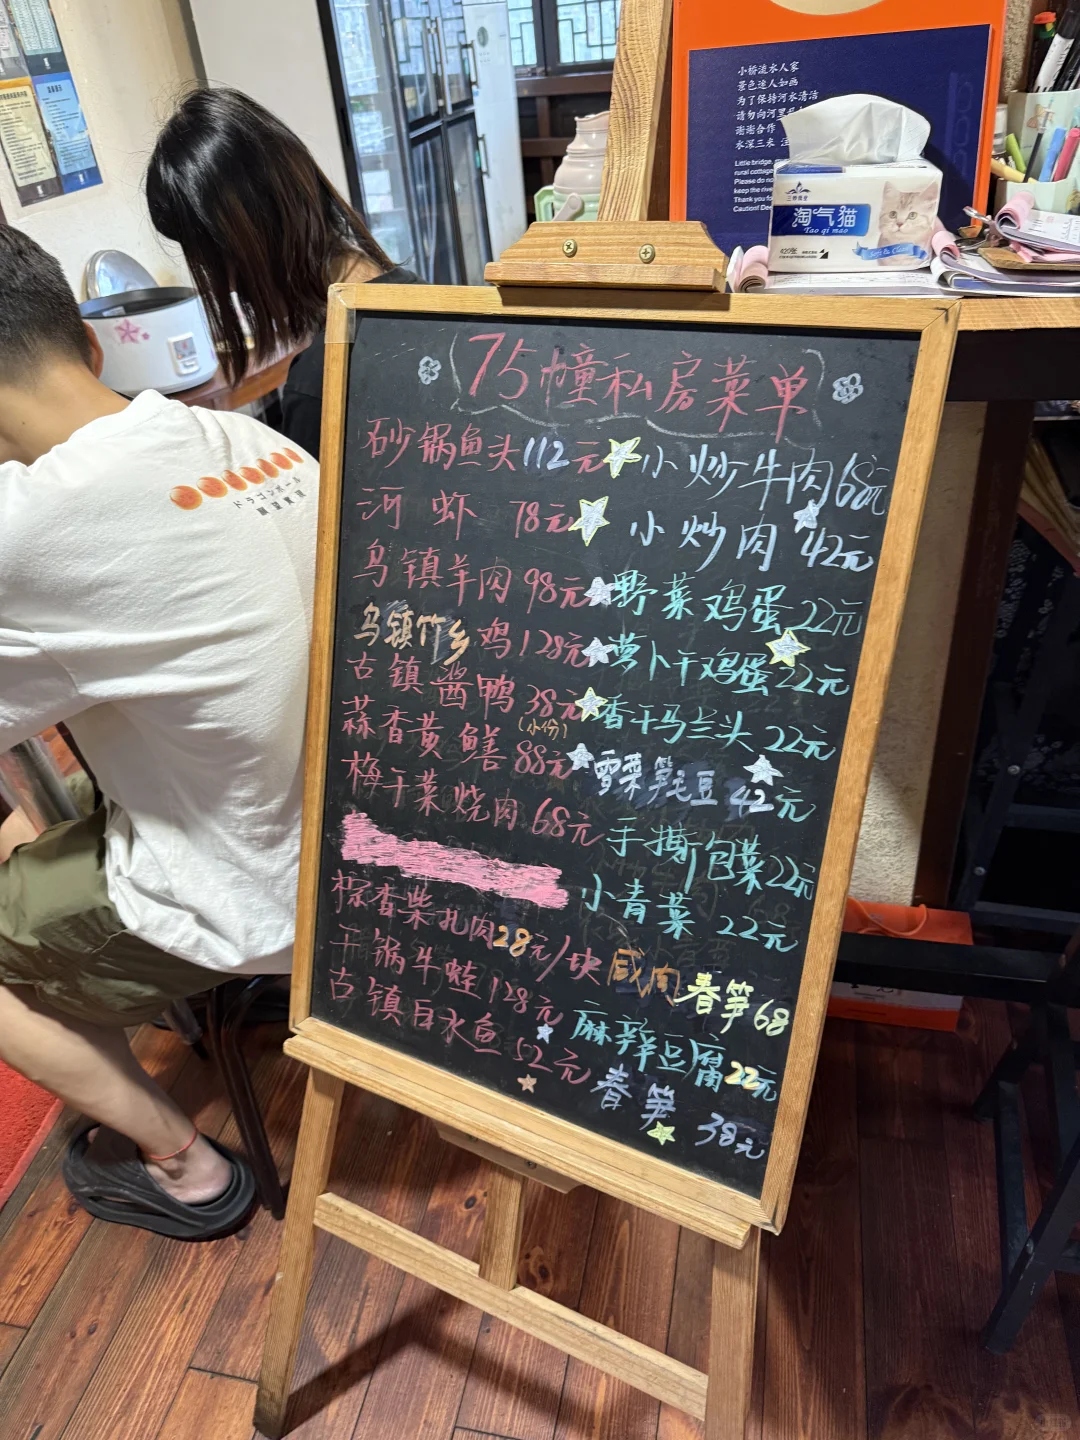 小桥流水人家
景色迷人如画
为了保持河水清洁
请勿向河里
谢谢合作
水深三米 注
Little bridge,
rural cottage
Please do no
keep the rive
Thank you fo
Caution! Dee
淘气猫
Tao qi mao
ドラゴンボール
75幢私房菜单
砂锅鱼头112元
河虾 78元
乌镇羊肉 98元
乌镇竹乡鸡128元
古镇酱鸭 38元
(小份)
蒜香黄鳝 88元
梅干菜烧肉 68元
粽香柴扎肉28元/块
干锅牛蛙128元
古镇白水鱼 52元
小炒牛肉68元
小炒肉 42元
野菜鸡蛋22元
萝卜干鸡蛋22元
香干马兰头 22元
雪菜笋毛豆 42元
手撕包菜22元
小青菜 22元
咸肉春笋68
麻辣豆腐22元
春笋 38元